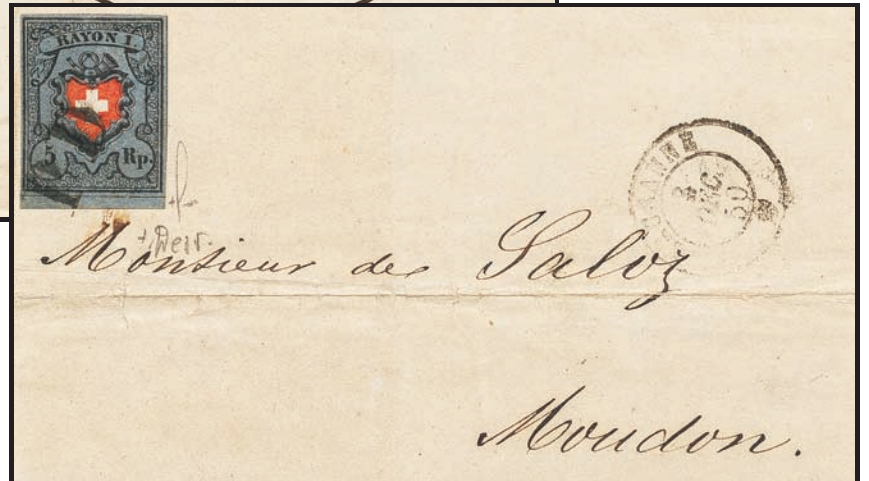 RAYON I.
5 Rp.
LAUSANNE
DEC
50
Monsieur de Saloz
Moudon.